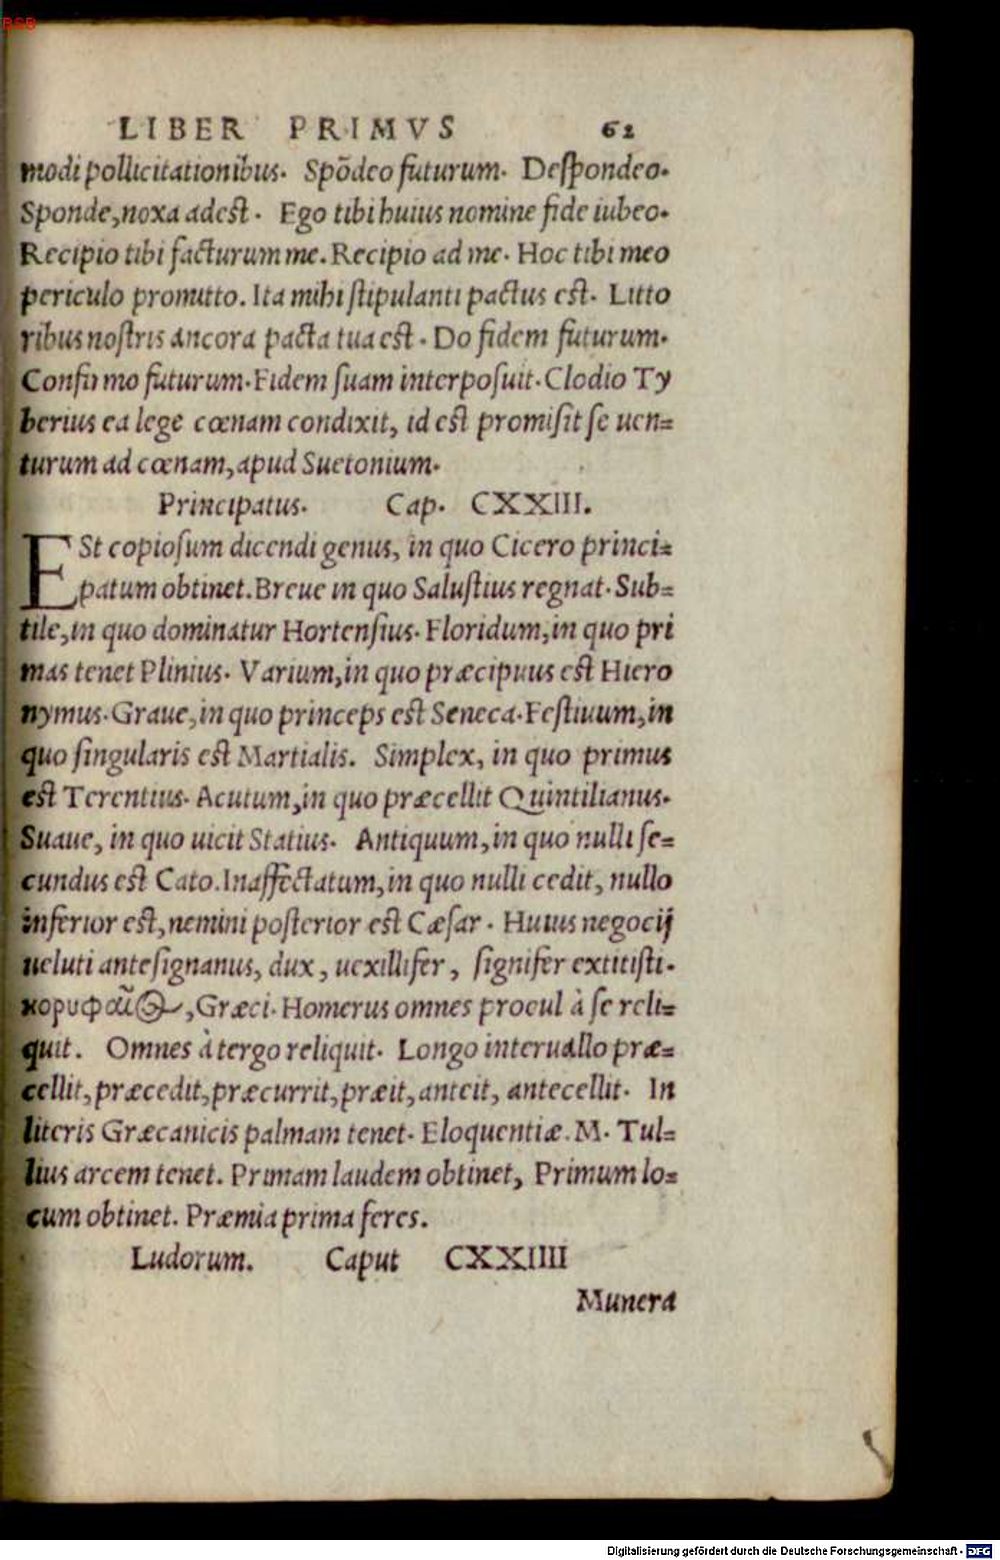 BSB
LIBER PRIMVS 62
modi pollicitationibus. Spōdeo futurum. Despondeo.
Sponde, noxa adest. Ego tibi huius nomine fide iubeo.
Recipio tibi facturum me. Recipio ad me. Hoc tibi meo
periculo promitto. Ita mihi stipulanti pactus est. Litto
ribus nostris ancora pacta tua est. Do fidem futurum.
Confirmo futurum. Fidem suam interposuit. Clodio Ty
berius ea lege cœnam condixit, id est promisit se uen=
turum ad cœnam, apud Suetonium.
Principatus. Cap. CXXIII.
ESt copiosum dicendi genus, in quo Cicero princi=
patum obtinet. Breue in quo Salustius regnat. Sub=
tile, in quo dominatur Hortensius. Floridum, in quo pri
mas tenet Plinius. Varium, in quo præcipuus est Hiero
nymus. Graue, in quo princeps est Seneca. Festiuum, in
quo singularis est Martialis. Simplex, in quo primus
est Terentius. Acutum, in quo præcellit Quintilianus.
Suaue, in quo uicit Statius. Antiquum, in quo nulli se=
cundus est Cato. Inaffectatum, in quo nulli cedit, nullo
inferior est, nemini posterior est Cæsar. Huius negocij
ueluti antesignanus, dux, uexillifer, signifer extitisti.
κορυφαῖος, Græci. Homerus omnes procul à se reli=
quit. Omnes à tergo reliquit. Longo interuallo præ=
cellit, præcedit, præcurrit, præit, anteit, antecellit. In
literis Græcanicis palmam tenet. Eloquentiæ. M. Tul=
lius arcem tenet. Primam laudem obtinet, Primum lo=
cum obtinet. Præmia prima feres.
Ludorum. Caput CXXIIII
Munera
Digitalisierung gefördert durch die Deutsche Forschungsgemeinschaft - DFG